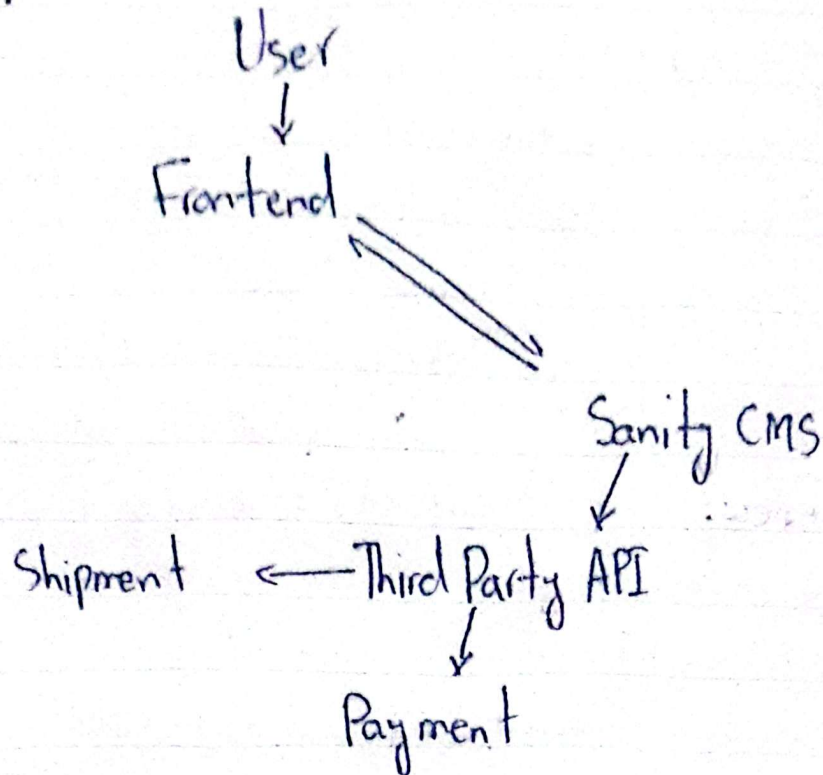 User
Frontend
Sanity CMS
Shipment
Third Party API
Payment